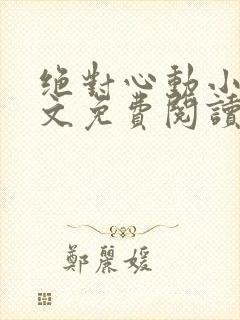 絕對心動小
文免費閱讀
鄭麗媛